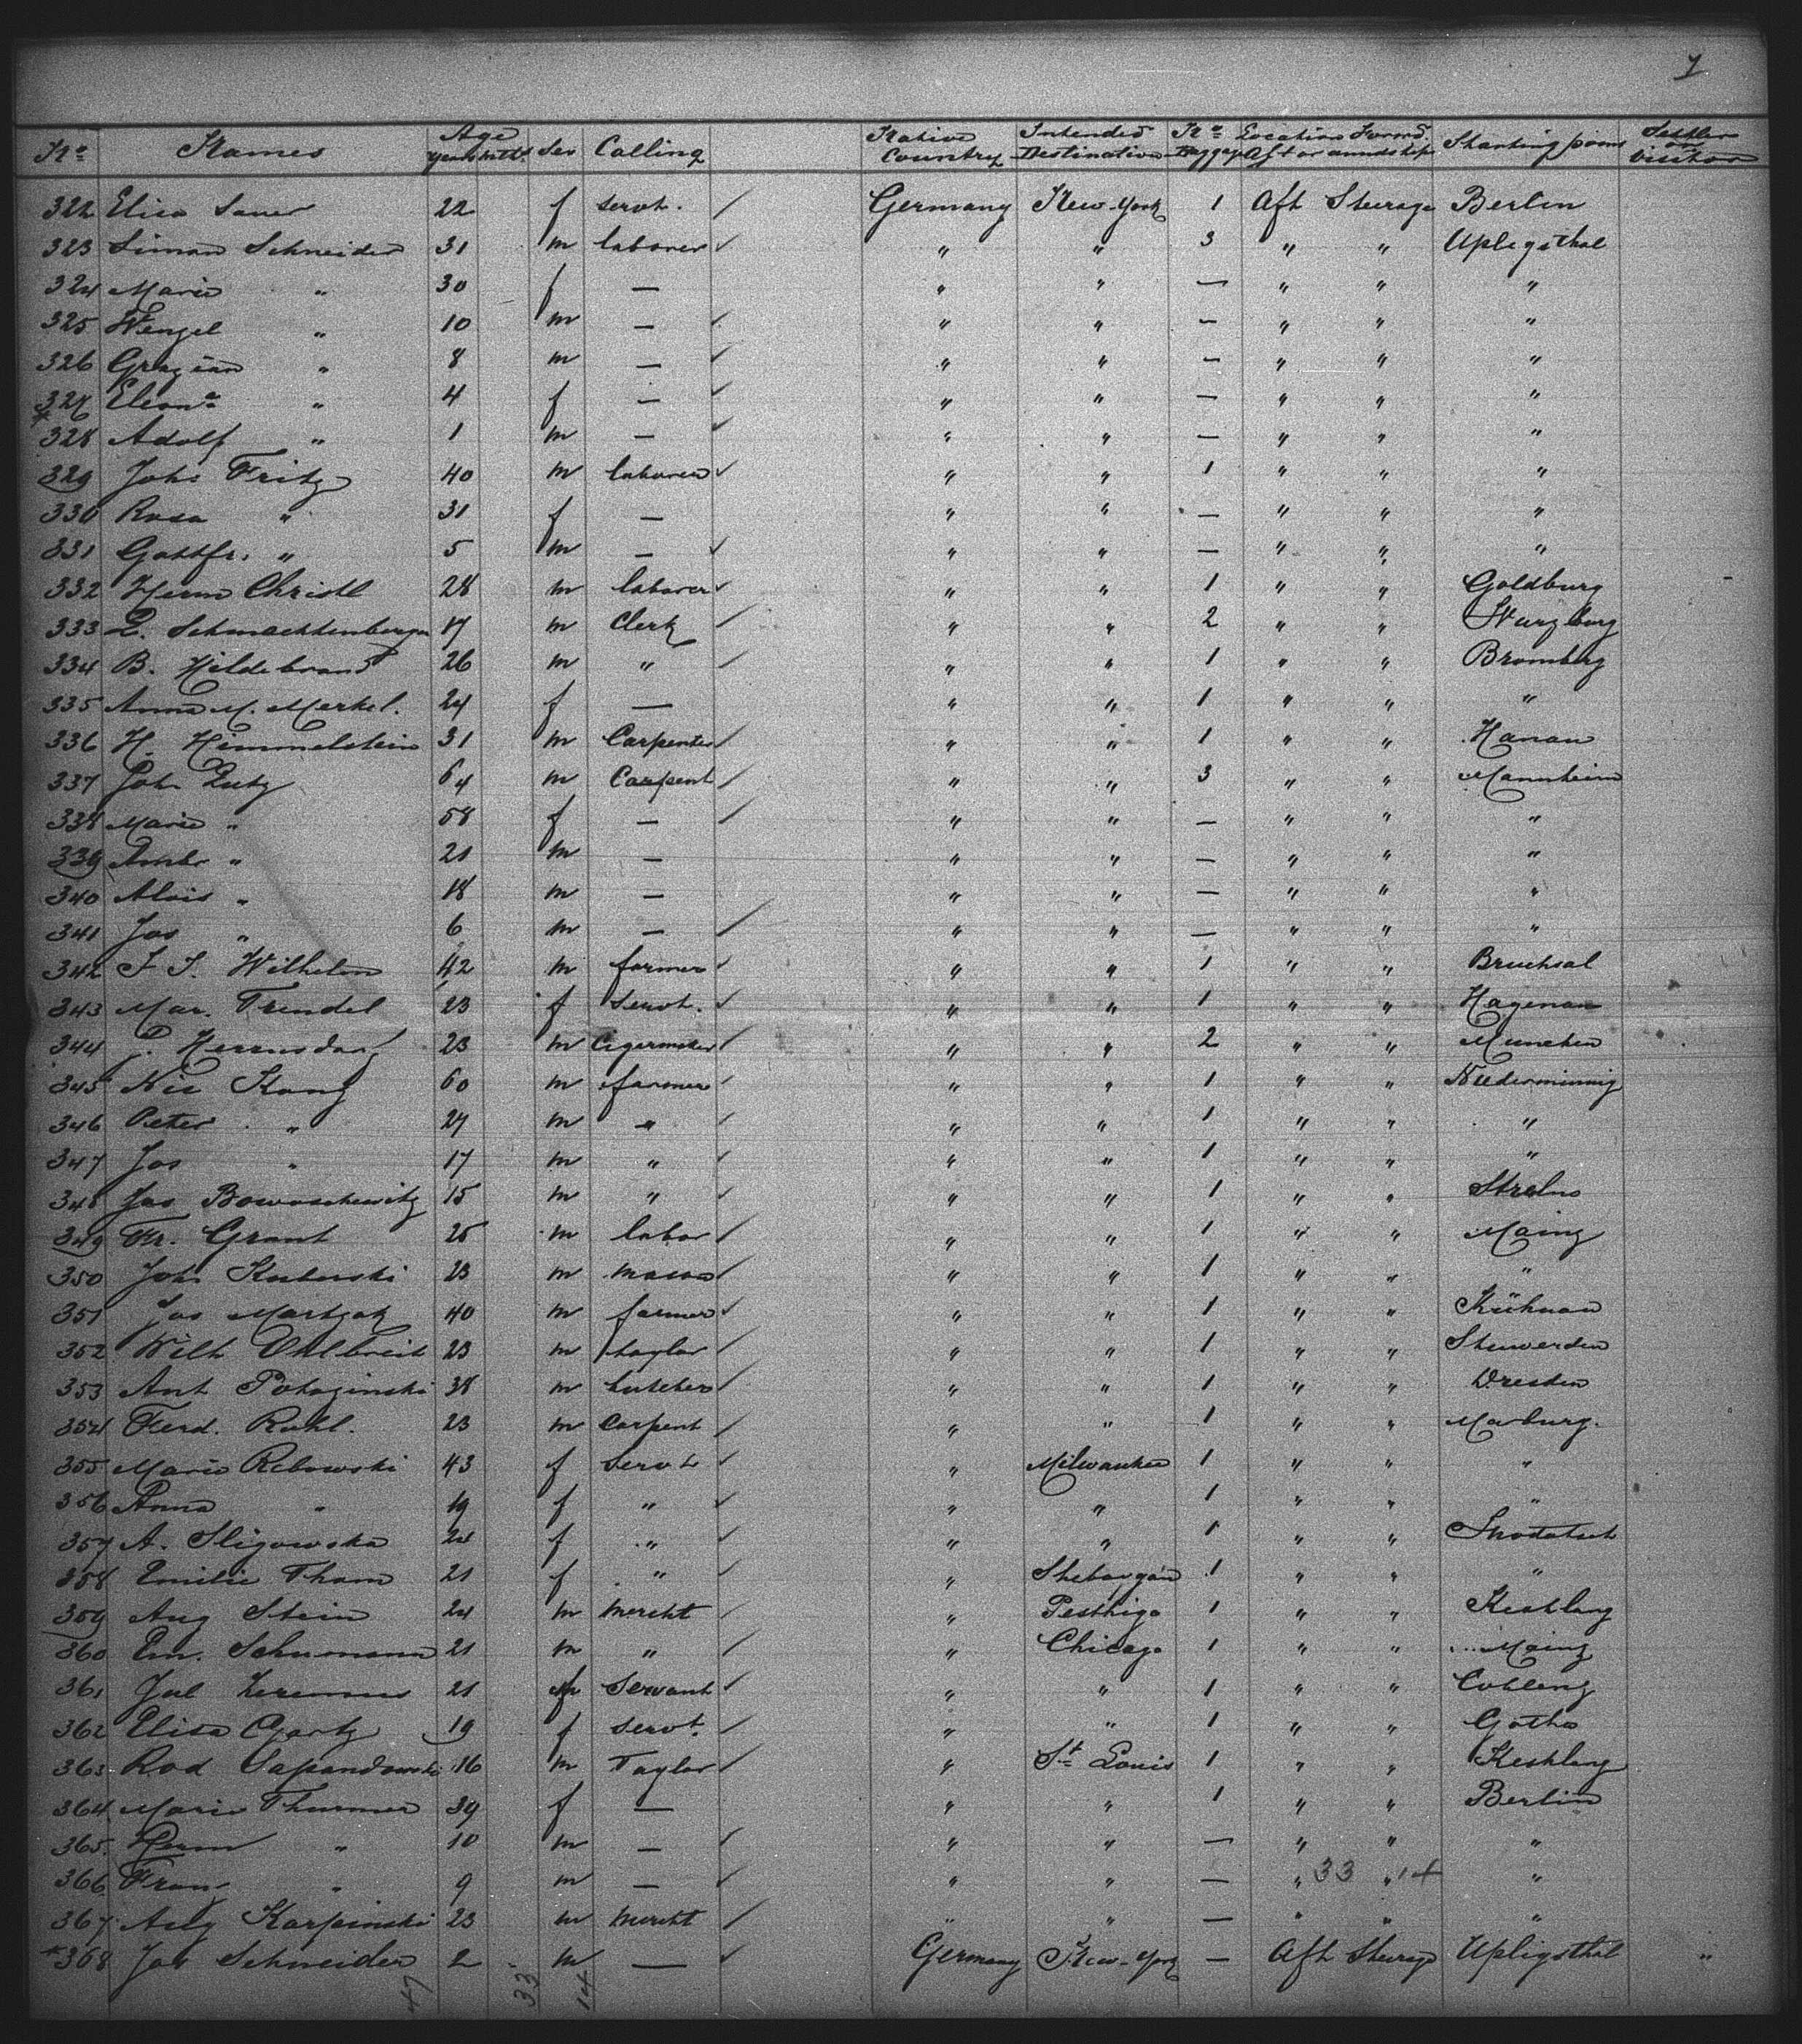 7
No Names Age years mths. Sex Calling Native Country Intended Destination No Baggage Location Forwd. Aft or amidships Starting point Settler or Visitor
322 Elisa Sauer 22 f servt. / Germany New-York 1 Aft Steerage Berlin
323 Simon Schneider 31 m laborer ✓ " " 3 " " Upligsthal
324 Marie " 30 f — " " — " " "
325 Wenzel " 10 m — ✓ " " — " " "
326 Grazian " 8 m — ✓ " " — " " "
327 Eleona " 4 f — ✓ " " — " " "
* 328 Adolf " 1 m — ✓ " " — " " "
329 Joh. Fritz 40 m laborer ✓ " " 1 " " "
330 Rosa " 31 f — " " — " " "
331 Gottfr. " 5 m — ✓ " " — " " "
332 Herm Christl 28 m laborer ✓ " " 1 " " Goldburg
333 L. Schmachtenberger 17 m Clerk / " " 2 " " Wurzburg
334 B. Hildebrand 26 m " / " " 1 " " Bromberg
335 Anna M. Merkel. 24 f — " " 1 " " "
336 H. Himmelstein 31 m Carpenter / " " 1 " " Hanau
337 Joh Lutz 64 m Carpent / " " 3 " " Mannheim
338 Marie " 58 f — / " " — " " "
339 Ambr " 21 m — " " — " " "
340 Alois " 18 m — " " — " " "
341 Jos " 6 m — / " " — " " "
342 J. Wilhelm 42 m farmer ✓ " " 1 " " Bruchsal
343 Mar. Trendel 23 f Servt. ✓ " " 1 " " Hagenau
344 Hermsdorf 23 m Cigarmaker / " " 2 " " Munchen
345 Nic Konz 60 m farmer / " " 1 " " Niedermennig
346 Peter " 27 m " / " " 1 " " "
347 Jos " 17 m " ✓ " " 1 " " "
348 Jos Bowoschewitz 15 m " ✓ " " 1 " " Strelno
349 Fr. Grant 25 m labor / " " 1 " " Mainz
350 Joh Kuberski 23 m mason / " " 1 " " "
351 Jos Martzok 40 m farmer ✓ " " 1 " " Kühnau
352 Wilh 23 m taylor / " " 1 " "
353 Ant Potozinski 38 m butcher / " " 1 " " Dresden
354 Ferd. Rahl. 23 m Carpent / " " 1 " " Marburg.
355 Marie Rebowski 43 f servt ✓ " Milwaukee 1 " " "
356 Anna " 19 f " ✓ " " 1 " " "
357 A. Sligowska 24 f " ✓ " " 1 " "
358 Emilie Tham 21 f " / " Sheboygan 1 " " "
359 Aug Stein 24 m mercht / " Peshtigo 1 " "
360 Em. Schumann 21 m " / " Chicago 1 " " Mainz
361 Jul 21 f Servant / " " 1 " " Coblenz
362 Elisa Gartz 19 f servt. / " " 1 " " Gotha
363 Rod Sapandowski 16 m Taylor / " St Louis 1 " "
364 Marie Thurmer 39 f — " " 1 " " Berlin
365 Herm " 10 m — / " " — " " "
366 Franz " 9 m — / " " — " 33 " 14 "
367 Aug Karpinski 23 m mercht / " " — " " "
*368 Jos Schneider 2 m — ✓ Germany New-York — Aft Steerage Upligsthal "
47 33 14